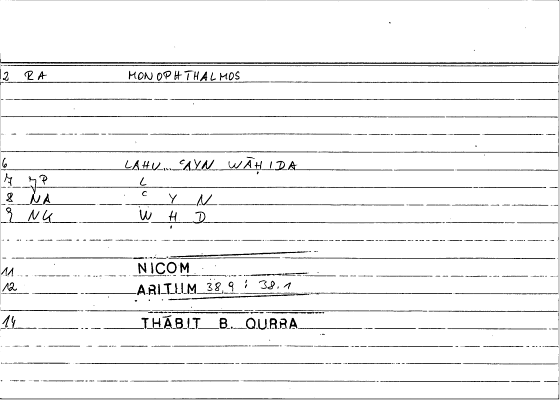 2 RA MONOPHTHALMOS
6 LAHŪ ʿAYN WĀḤIDA
7 JP L
8 NA ʿ Y N
9 NK W Ḥ D
11 NICOM
12 ARITIIM 38,9 : 38.1
14 THĀBIT B. QURRA